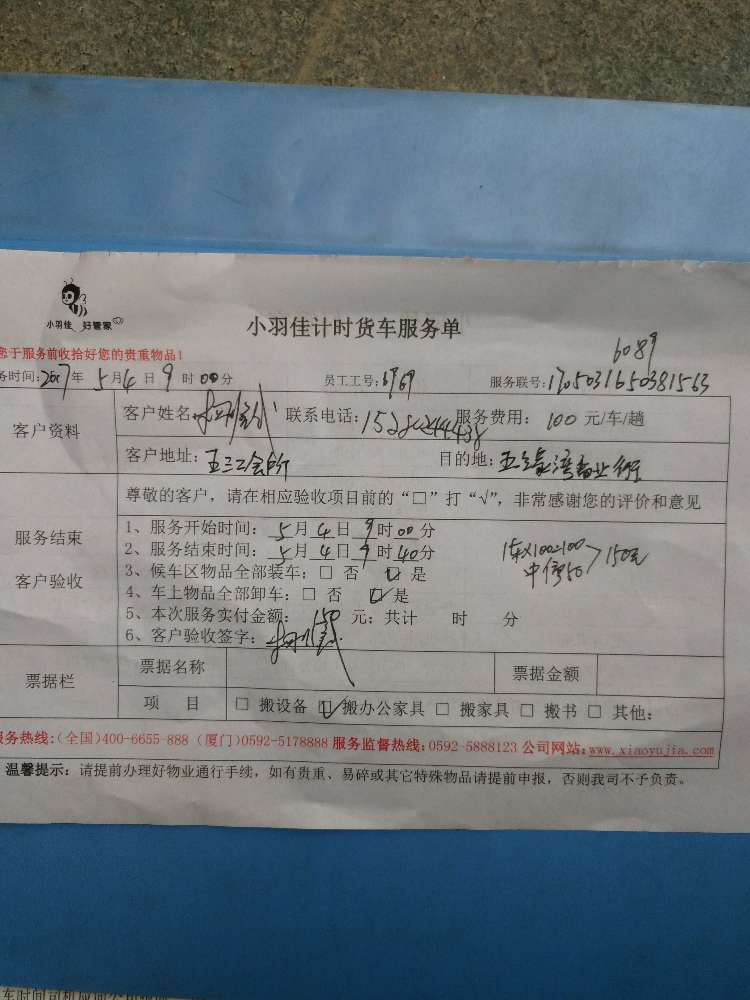 小羽佳 好管家
小羽佳计时货车服务单
您于服务前收拾好您的贵重物品!
6089
务时间:2017年5月4日9时00分 员工工号: 服务联号:1705031650381563
客户资料
客户姓名: 联系电话: 服务费用: 100 元/车/趟
客户地址: 五三工会所 目的地: 五缘湾商业街
尊敬的客户，请在相应验收项目前的“□”打“√”，非常感谢您的评价和意见
服务结束
客户验收
1、服务开始时间: 5月4日9时00分
2、服务结束时间: 5月4日9时40分
1车X100=100
中停50
150元
3、候车区物品全部装车: □ 否 ☑ 是
4、车上物品全部卸车: □ 否 ☑ 是
5、本次服务实付金额: 150 元; 共计 时 分
6、客户验收签字:
票据栏
票据名称 票据金额
项 目 □ 搬设备 ☑ 搬办公家具 □ 搬家具 □ 搬书 □ 其他:
服务热线:(全国)400-6655-888 (厦门)0592-5178888 服务监督热线:0592-5888123 公司网站:www.xiaoyujia.com
温馨提示: 请提前办理好物业通行手续，如有贵重、易碎或其它特殊物品请提前申报，否则我司不予负责。